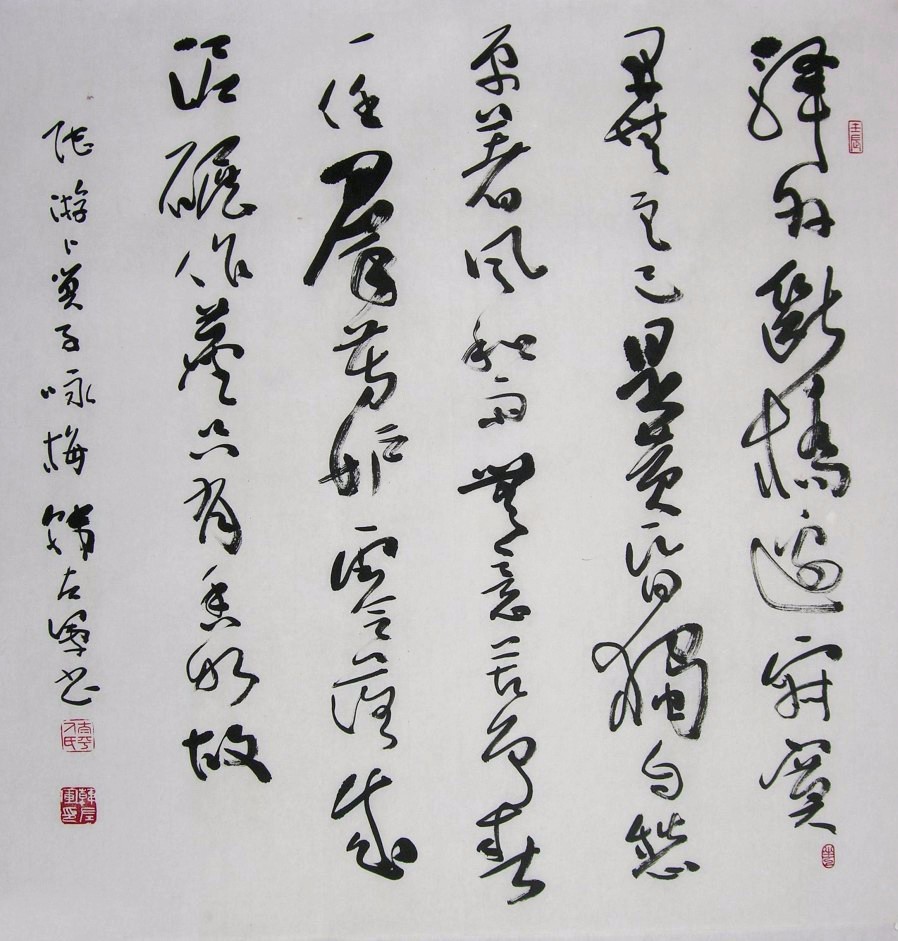 壬辰
驛外斷橋邊寂寞
開無主已是黃昏獨自愁
更著風和雨無意苦爭春
一任群芳妒零落成
泥碾作塵只有香如故
陸游卜算子咏梅 韓左軍書
韓左軍印